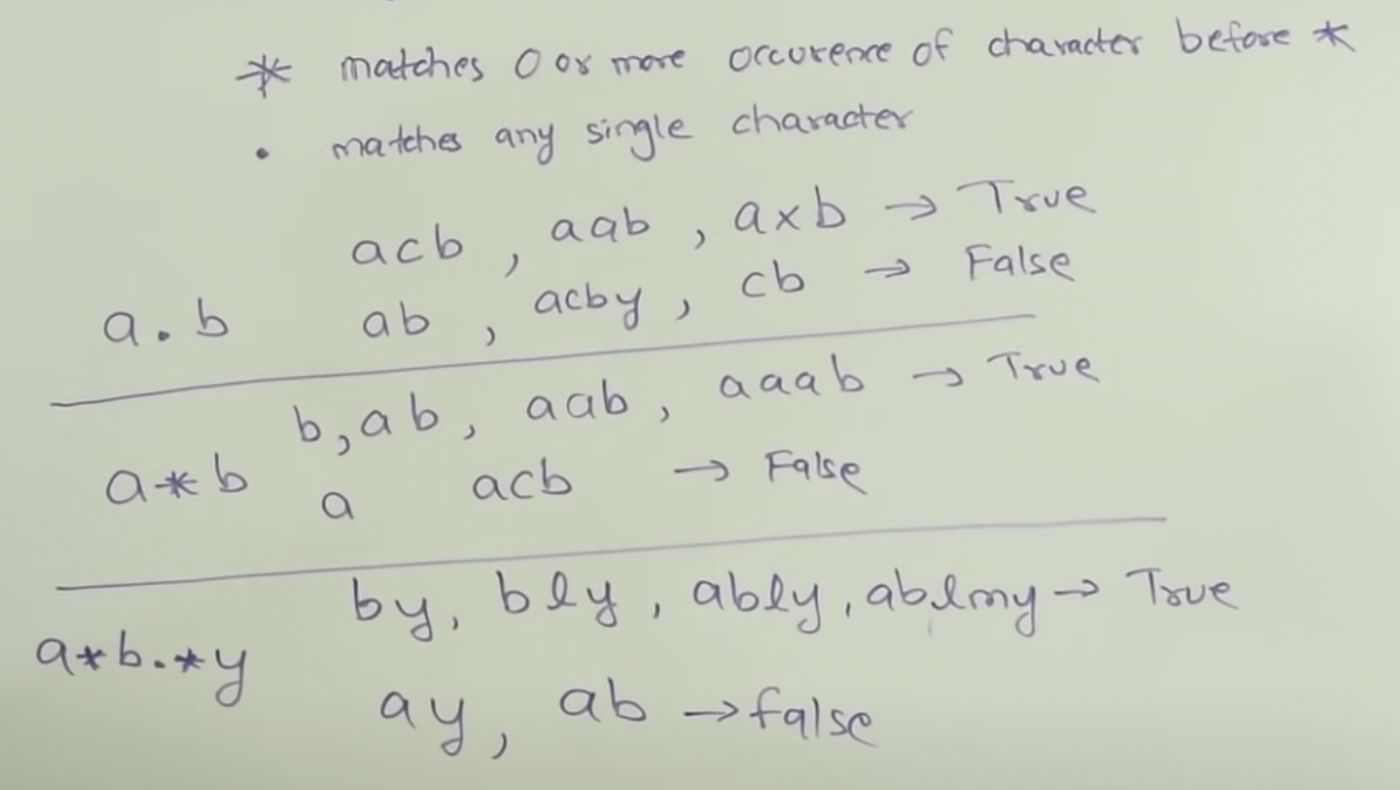 * matches 0 or more occurence of character before *
. matches any single character
acb , aab , axb → True
a.b ab , acby , cb → False
b,ab, aab, aaab → True
a*b a acb → False
by, bly, ably, ablmy → True
a*b.*y
ay, ab → false